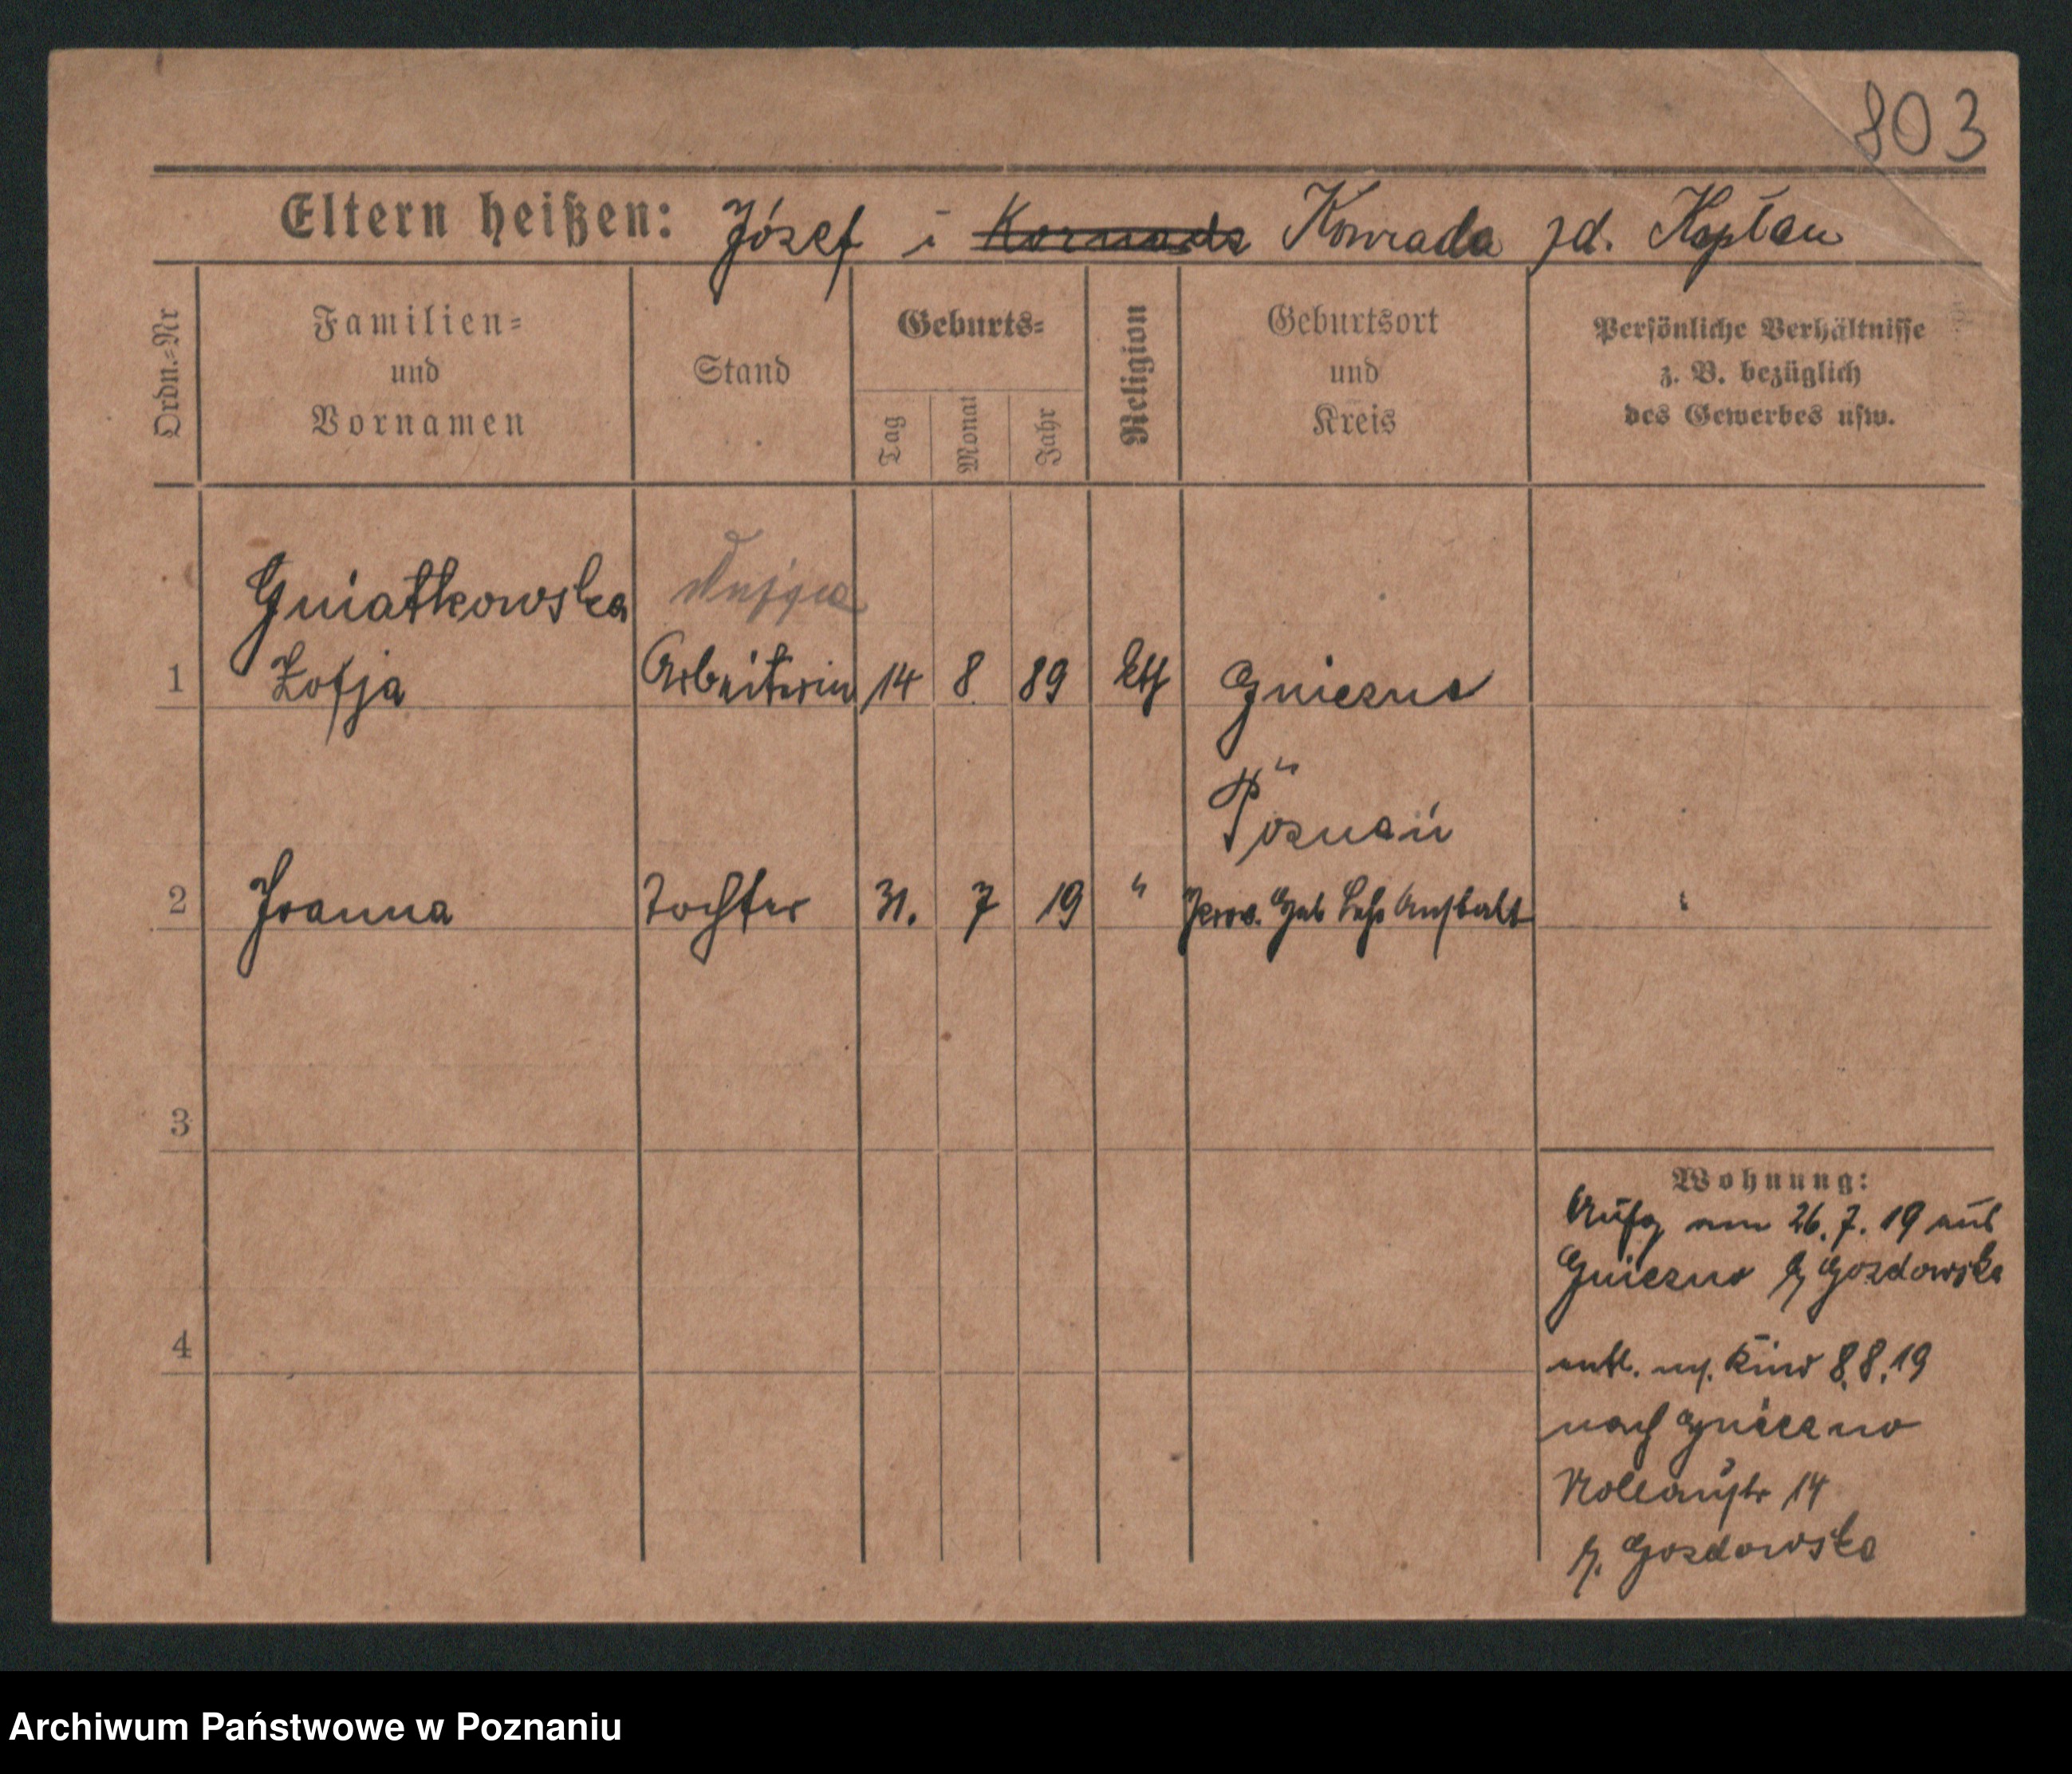 803
Eltern heißen: Józef i Kornada Konrada zd. Kapłan
Ordn.-Nr
Familien-
und
Vornamen
Stand
Geburts-
Tag
Monat
Jahr
Religion
Geburtsort
und
Kreis
Persönliche Verhältnisse
z. B. bezüglich
des Gewerbes usw.
Gniatkowska
1 Zofja Arbeiterin 14 8 89 kth Gniezno
"
Poznań
2 Joanna Tochter 31. 7 19 " Prov. Geb Lehr Anstalt
3
Wohnung:
am 26. 7. 19 aus
Gniezno b/ Gozdowska
4
entl. m. Kind 8.8.19
nach Gniezno
14
b. Gozdowska
Archiwum Państwowe w Poznaniu